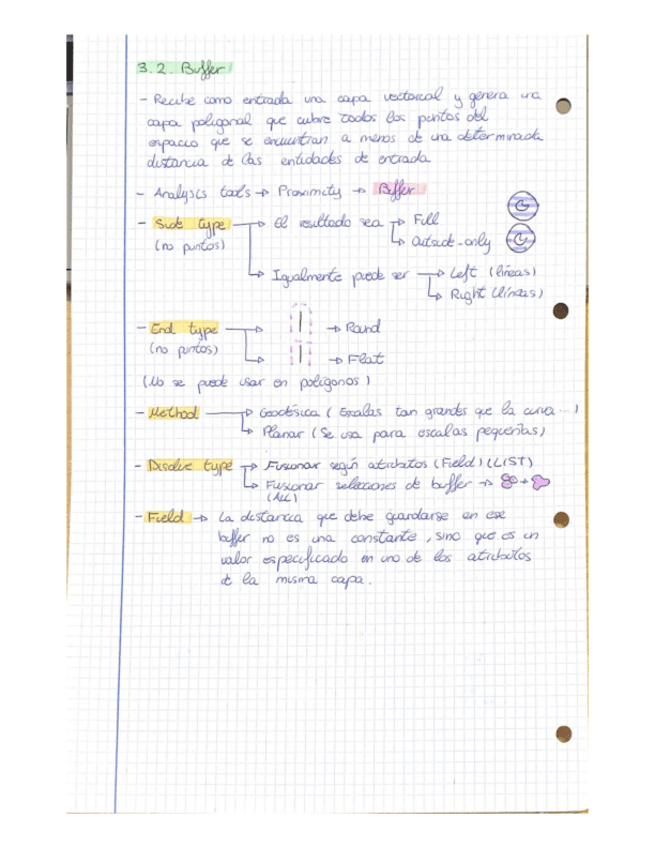 3.2. Buffer
- Recibe como entrada una capa vectorial y genera una
capa poligonal que cubre todos los puntos del
espacio que se encuentran a menos de una determinada
distancia de las entidades de entrada
- Analysis tools → Proximity → Buffer
- Side type → El resultado sea → Full
(no puntos) → Outside-only
→ Igualmente puede ser → Left (líneas)
→ Right (líneas)
- End type → → Round
(no puntos) → → Flat
(No se puede usar en polígonos)
- Method → Geodésica (Escalas tan grandes que la curva...)
→ Planar (Se usa para escalas pequeñas)
- Disolve type → Fusionar según atributos (Field) (LIST)
→ Fusionar selecciones de buffer →
(ALL)
- Field → La distancia que debe guardarse en ese
buffer no es una constante, sino que es un
valor especificado en uno de los atributos
de la misma capa.